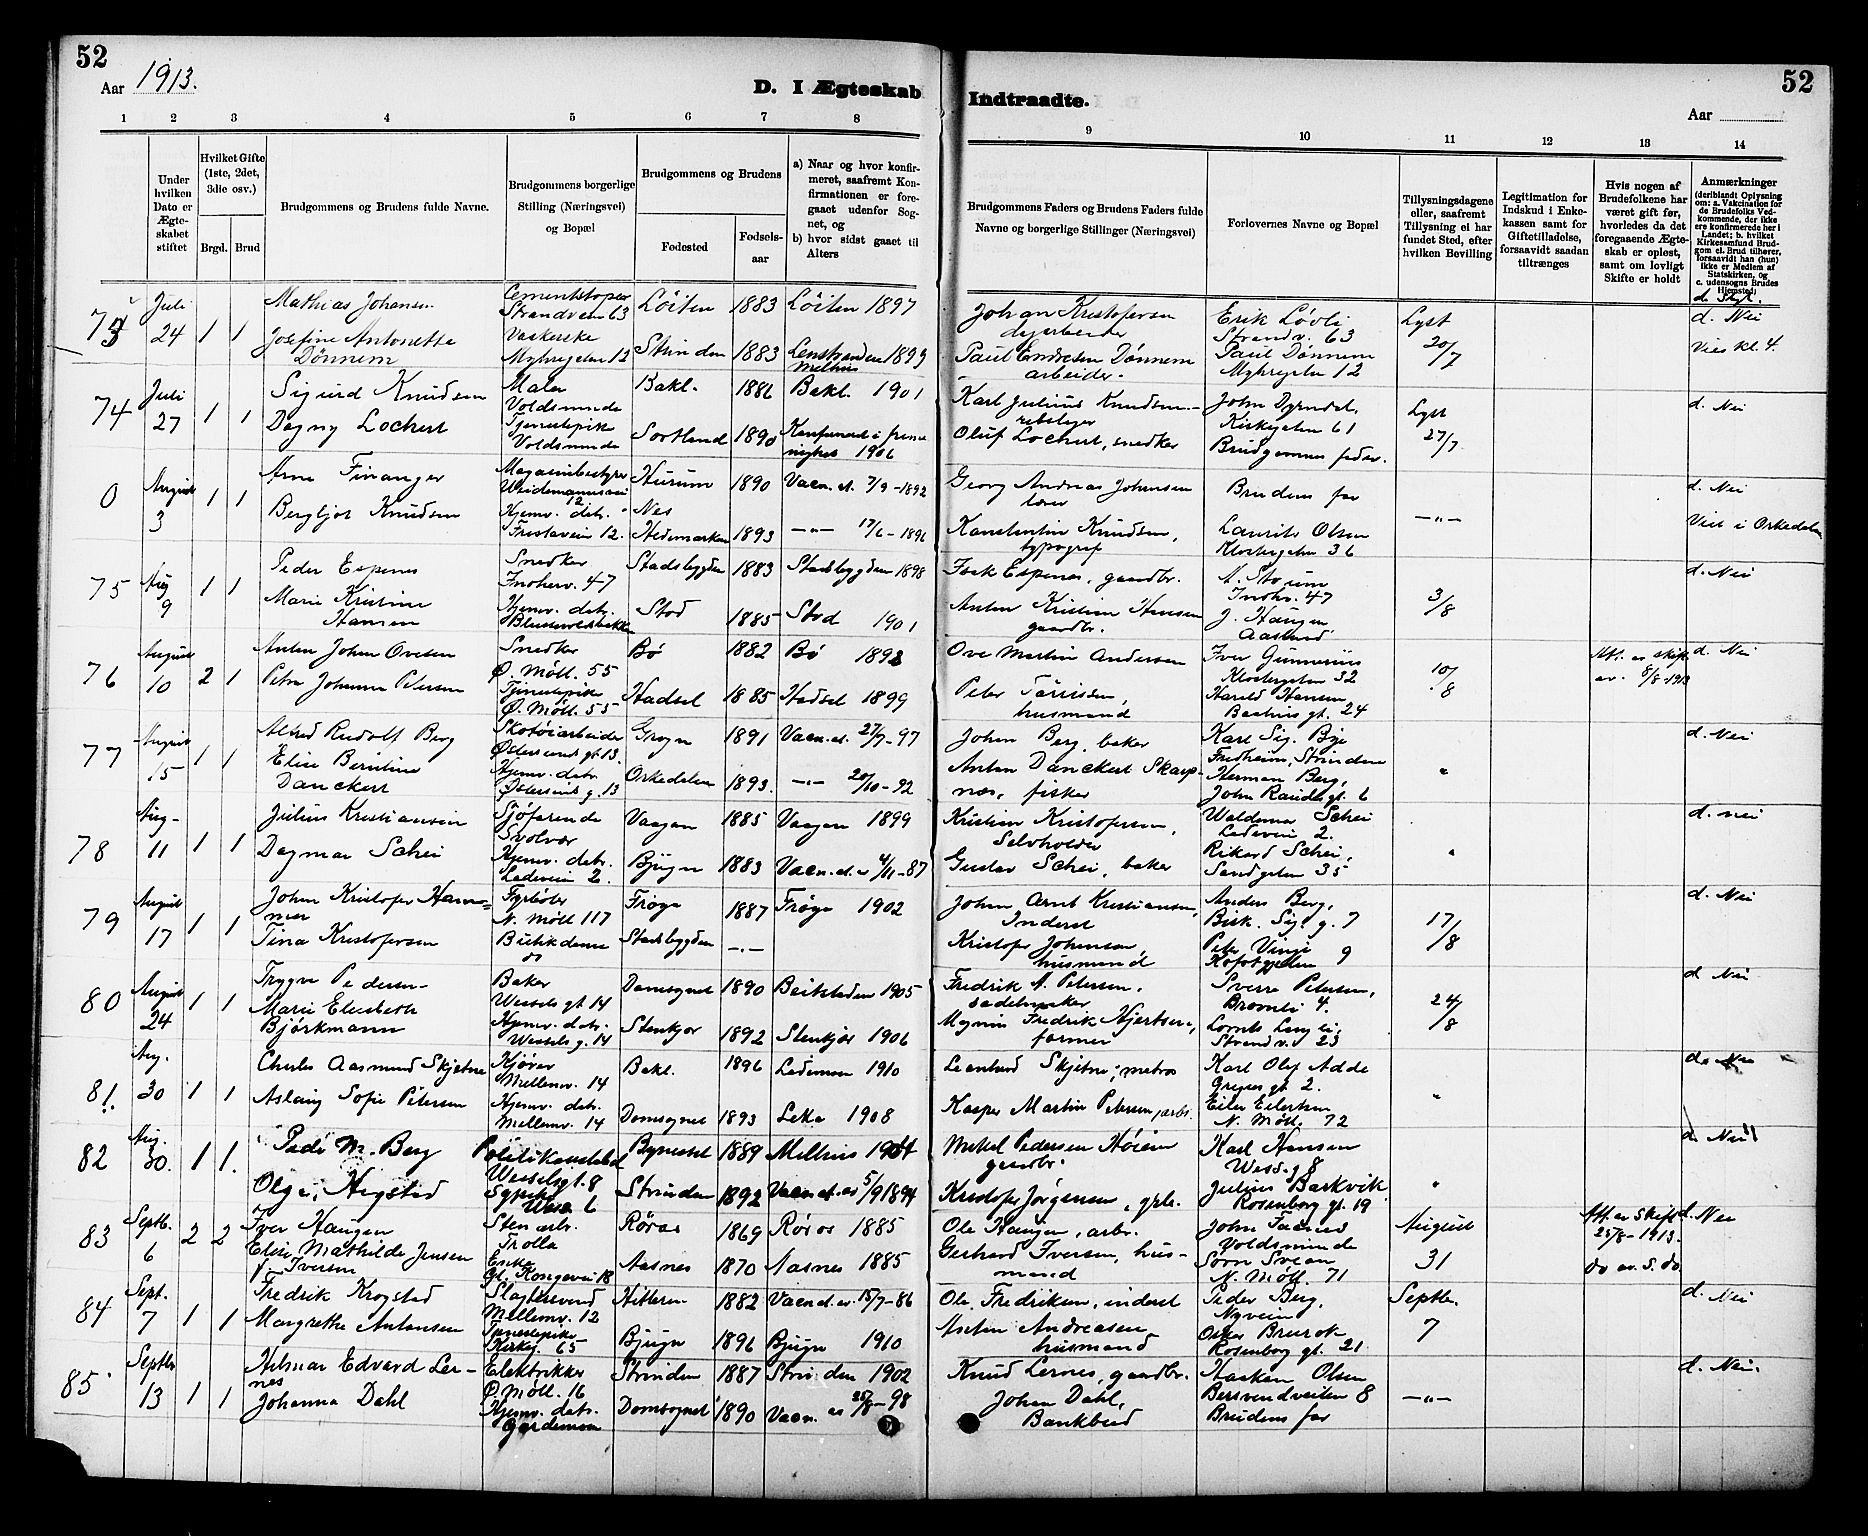 52
Aar 1913.
D. I Ægteskab
Indtraadte.
52
Aar
1 2 3 4 5 6 7 8
9 10 11 12 13 14
Under hvilken Dato er Ægteskabet stiftet
Hvilket Gifte (1ste, 2det, 3die osv.)
Brgd. Brud
Brudgommens og Brudens fulde Navne.
Brudgommens borgerlige Stilling (Næringsvei) og Bopæl
Brudgommens og Brudens
Fødested
Fødselsaar
a) Naar og hvor konfirmeret, saafremt Konfirmationen er foregaaet udenfor Sognet, og
b) hvor sidst gaaet til Alters
Brudgommens Faders og Brudens Faders fulde Navne og borgerlige Stillinger (Næringsvei)
Forlovernes Navne og Bopæl
Tillysningsdagene eller, saafremt Tillysning ei har fundet Sted, efter hvilken Bevilling
Legitimation for Indskud i Enkekassen samt for Giftetilladelse, forsaavidt saadan tiltrænges
Hvis nogen af Brudefolkene har været gift før, hvorledes da det foregaaende Ægteskab er opløst, samt om lovligt Skifte er holdt
Anmærkninger (deriblandt Oplysning om: a. Vakcination for de Brudefolks Vedkommende, der ikke ere konfirmerede her i Landet; b. hvilket Kirkesamfund Brudgom el. Brud tilhører, forsaavidt han (hun) ikke er Medlem af Statskirken, og c. udensogns Brudes Hjemsted;
73 Juli 24 1 1 Mathias Johansen Cementstøper Strandvein 63 Løiten 1883 Løiten 1897
Josefine Antonette Dønnem Vaskerske Myhregaten 12 Strinden 1883 Lenstranden 1899 Melhus
Johan Kristofersen Erik Løvli Strandv. 63 Lyst 20/7 d. Nei
Paul Endresen Dønnem arbeider. Paul Dønnem Myhregaten 12 Vies kl. 4.
74 Juli 27 1 1 Sigurd Knudsen Maler Voldsminde Bakl. 1886 Bakl. 1901
Dagny Lochert Tjenestepike Voldsminde Sortland 1890 1906
Karl Julius Knudsen Kirkegaten 61 Lyst 27/7 d. Nei
Oluf Lochert, snedker Brudgommens fader.
0 August 3 1 1 Arne Finanger Hurum 1890 Vacn. at. 7/9-1892
Bergljot Knudsen Hjemv. datr. Nes Hedemarken 1893 -"- 17/6-1896
Georg Andreas Johnsen Brudens far -"- d. Nei
Konstantin Knudsen, typograf Laurits Olsen Klostergaten 36 Viet i Orkedalen
75 Aug 9 1 1 Peder Espenes Snedker Innherv. 47 Stadsbygden 1883 Stadsbygden 1898
Marie Kristine Hansen Hjemv. datr. Stod 1885 Stod 1901
Espenes, gaardbr. A. Storum Innhv. 47 3/8 d. Nei
Anton Kristian Hansen gaardbr. J. Haugen
76 August 10 2 1 Anton Johan Ovesen Snedker Ø. Møll. 55 Bø 1882 Bø 1898
Petra Johanna Petersen Tjenestepike Ø. Møll. 55 Hadsel 1885 Hadsel 1899
Ove Martin Andersen Iver Gunnerius Klostergaten 32 10/8 d. Nei
Peter husmand Harald Hansen gt. 24
77 August 15 1 1 Alfred Rudolf Berg Skotøiarbeider Østersunds gt. 13. 1891 Vacn. at. 27/7-97
Elise Berntine Danckert Hjemv. datr. Østersunds g. 13 Orkedalen 1893. -"- 20/10-92
Johan Berg, baker Karl Sig. Bye Fredheim, Strinden d. Nei
Anton Danckert Skarpnæs, fisker Herman Berg, gt. 6 "
78 Aug- 11 1 1 Julius Kristiansen Sjøfarende Svolvær Vaagan 1885 Vaagan 1899
Dagmar Schei Hjemv. datr. Ladeveien 2. Bjugn 1883 Vacn. at. 4/11-87
Kristian Kristofersen, Selvholder Waldemar Schei Ladeveien 2. d. nei
Gustav Schei, baker Rikard Schei, Sandgaten 35 "
79 August 17 1 1 Johan Kristofer Fyrbøter N. Møll 117 Frøya 1887 Frøya 1902
Tina Kristofersen Butikdame do Stadsbygden -"-
Johan Arnt Kristiansen, Inderst Anders Berg, Bisk. Sig. g. 7 17/8 d. Nei
Kristofer Johansen husmand 9
80 August 24 1 1 Trygve Pedersen- Baker Wessels gt. 14 Domsognet 1890 Beitstaden 1905
Marie Elisabeth Bjørkmann Hjemv. datr. Wessels g. 14 Stenkjær 1892 Stenkjær 1906
Fredrik A. Petersen, sadelmaker Sverre Petersen, 4. 24/8 d Nei
Magnus Fredrik former Strandv. 23
81. Aug. 30 1 1 Charles Aasmund Skjetne Kjører Mellemv. 14 Bakl. 1896 Lademoen 1910
Aslaug Sofie Petersen Hjemv. datr. Mellemv. 14 Domsognet 1893 Leka 1908
Leonhard Skjetne, matros Karl Olaf Adde gt. 2. d. Nei
Kasper Martin Petersen, arb. Eiler Eilertsen N. Møll. 72 "
82 Aug. 30. 1 1. Peder M. Berg Politikonstabel Wesselsgt. 8 Bynesset 1889 Melhus 1904
Olga Hegstad Sypike Wess 6 Strinden 1892 Vacn. at. 5/9 1894
Mikal Pedersen Høiem gaardbr. Karl Hansen Wess. g 8 d. Nei
Kristofer Jørgensen, Julius Barkvik Rosenborg gt. 19 "
83 Septb. 6 2 2 Iver Haugen Sten arb. Trolla Røros 1869 Røros 1885
Elise Mathilde Jensen f. Iversen Enke Gl. Kongevei 18 Aasnes 1870 Aasnes 1885
Ole Haugen, arbr. John Voldsminde August 31 Att. av Skift. 25/8-1913. d. Nei
Gerhard Iversen, husmand Sörn Svean N. Møll. 71 do av. S. do
84 Sept. 7 1 1 Fredrik Krogstad Slagtersvend Mellemv. 12 Hitteren 1882 Vacn. at. 15/7-86
Margrethe Antonsen Tjenestepike Kirkeg. 65 Bjugn 1896 Bjugn 1910
Ole Fredriksen, inderst Peder Berg, Nyveien Septbr. 7 d. Nei
Anton Andreasen husmand Rosenborg gt. 21
85 Septbr 13 1 1 Hilmar Edvard Lernes Elektrikker Ø. Møll. 16 Strinden 1887 Strinden 1902
Johanna Dahl Hjemv. datr. Domsognet 1890 Vacn. at 25/8-98
Knud Lernes, gaardbr. Haakon Olsen Bersvendveiten 8 -"- d. Nei.
Johan Dahl, Bankbud Brudens far